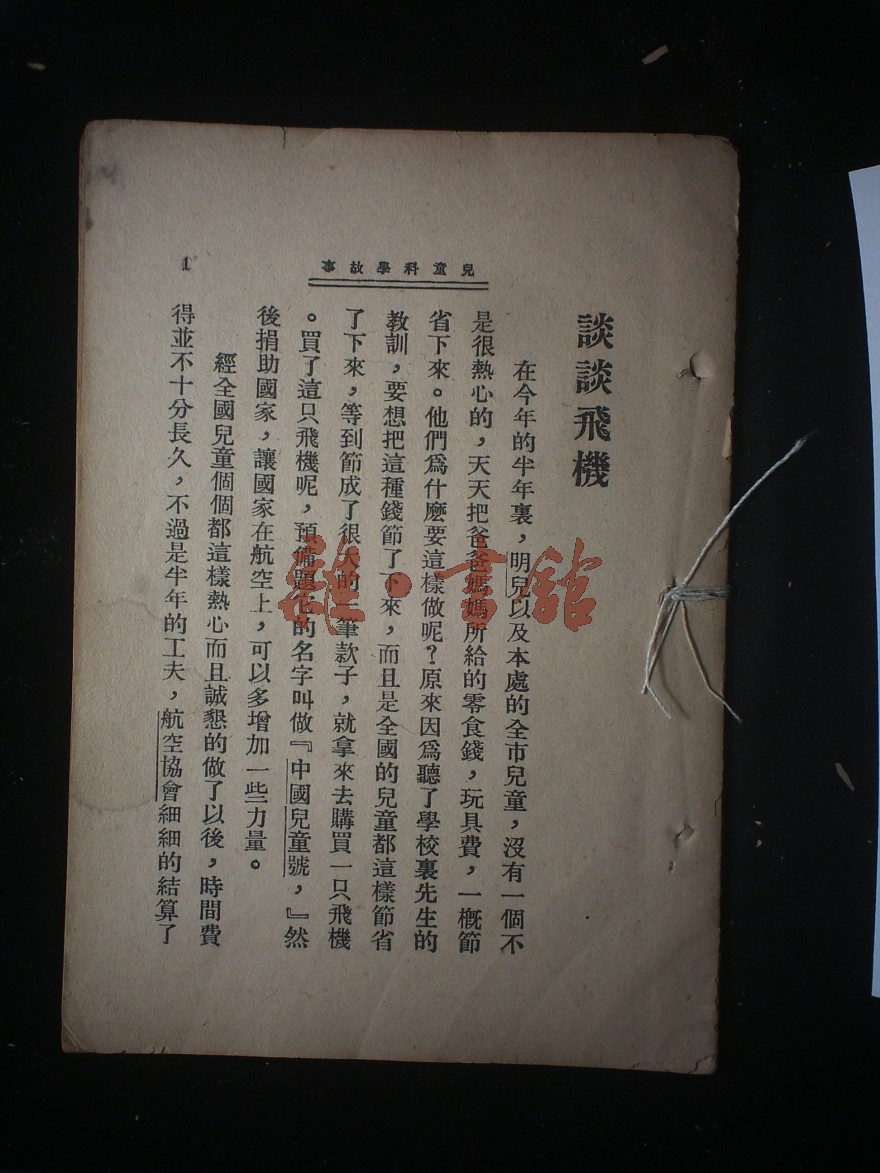 兒童科學故事
談談飛機
在今年的半年裏，明兒以及本處的全市兒童，沒有一個不
是很熱心的，天天把爸爸媽媽所給的零食錢，玩具費，一概節
省下來。他們爲什麽要這樣做呢？原來因爲聽了學校裏先生的
教訓，要想把這種錢節了下來，而且是全國的兒童都這樣節省
了下來，等到節成了很大的一筆款子，就拿來去購買一只飛機
。買了這只飛機呢，預備題它的名字叫做『中國兒童號，』然
後捐助國家，讓國家在航空上，可以多增加一些力量。
經全國兒童個個都這樣熱心而且誠懇的做了以後，時間費
得並不十分長久，不過是半年的工夫，航空協會細細的結算了
1
雜·書館